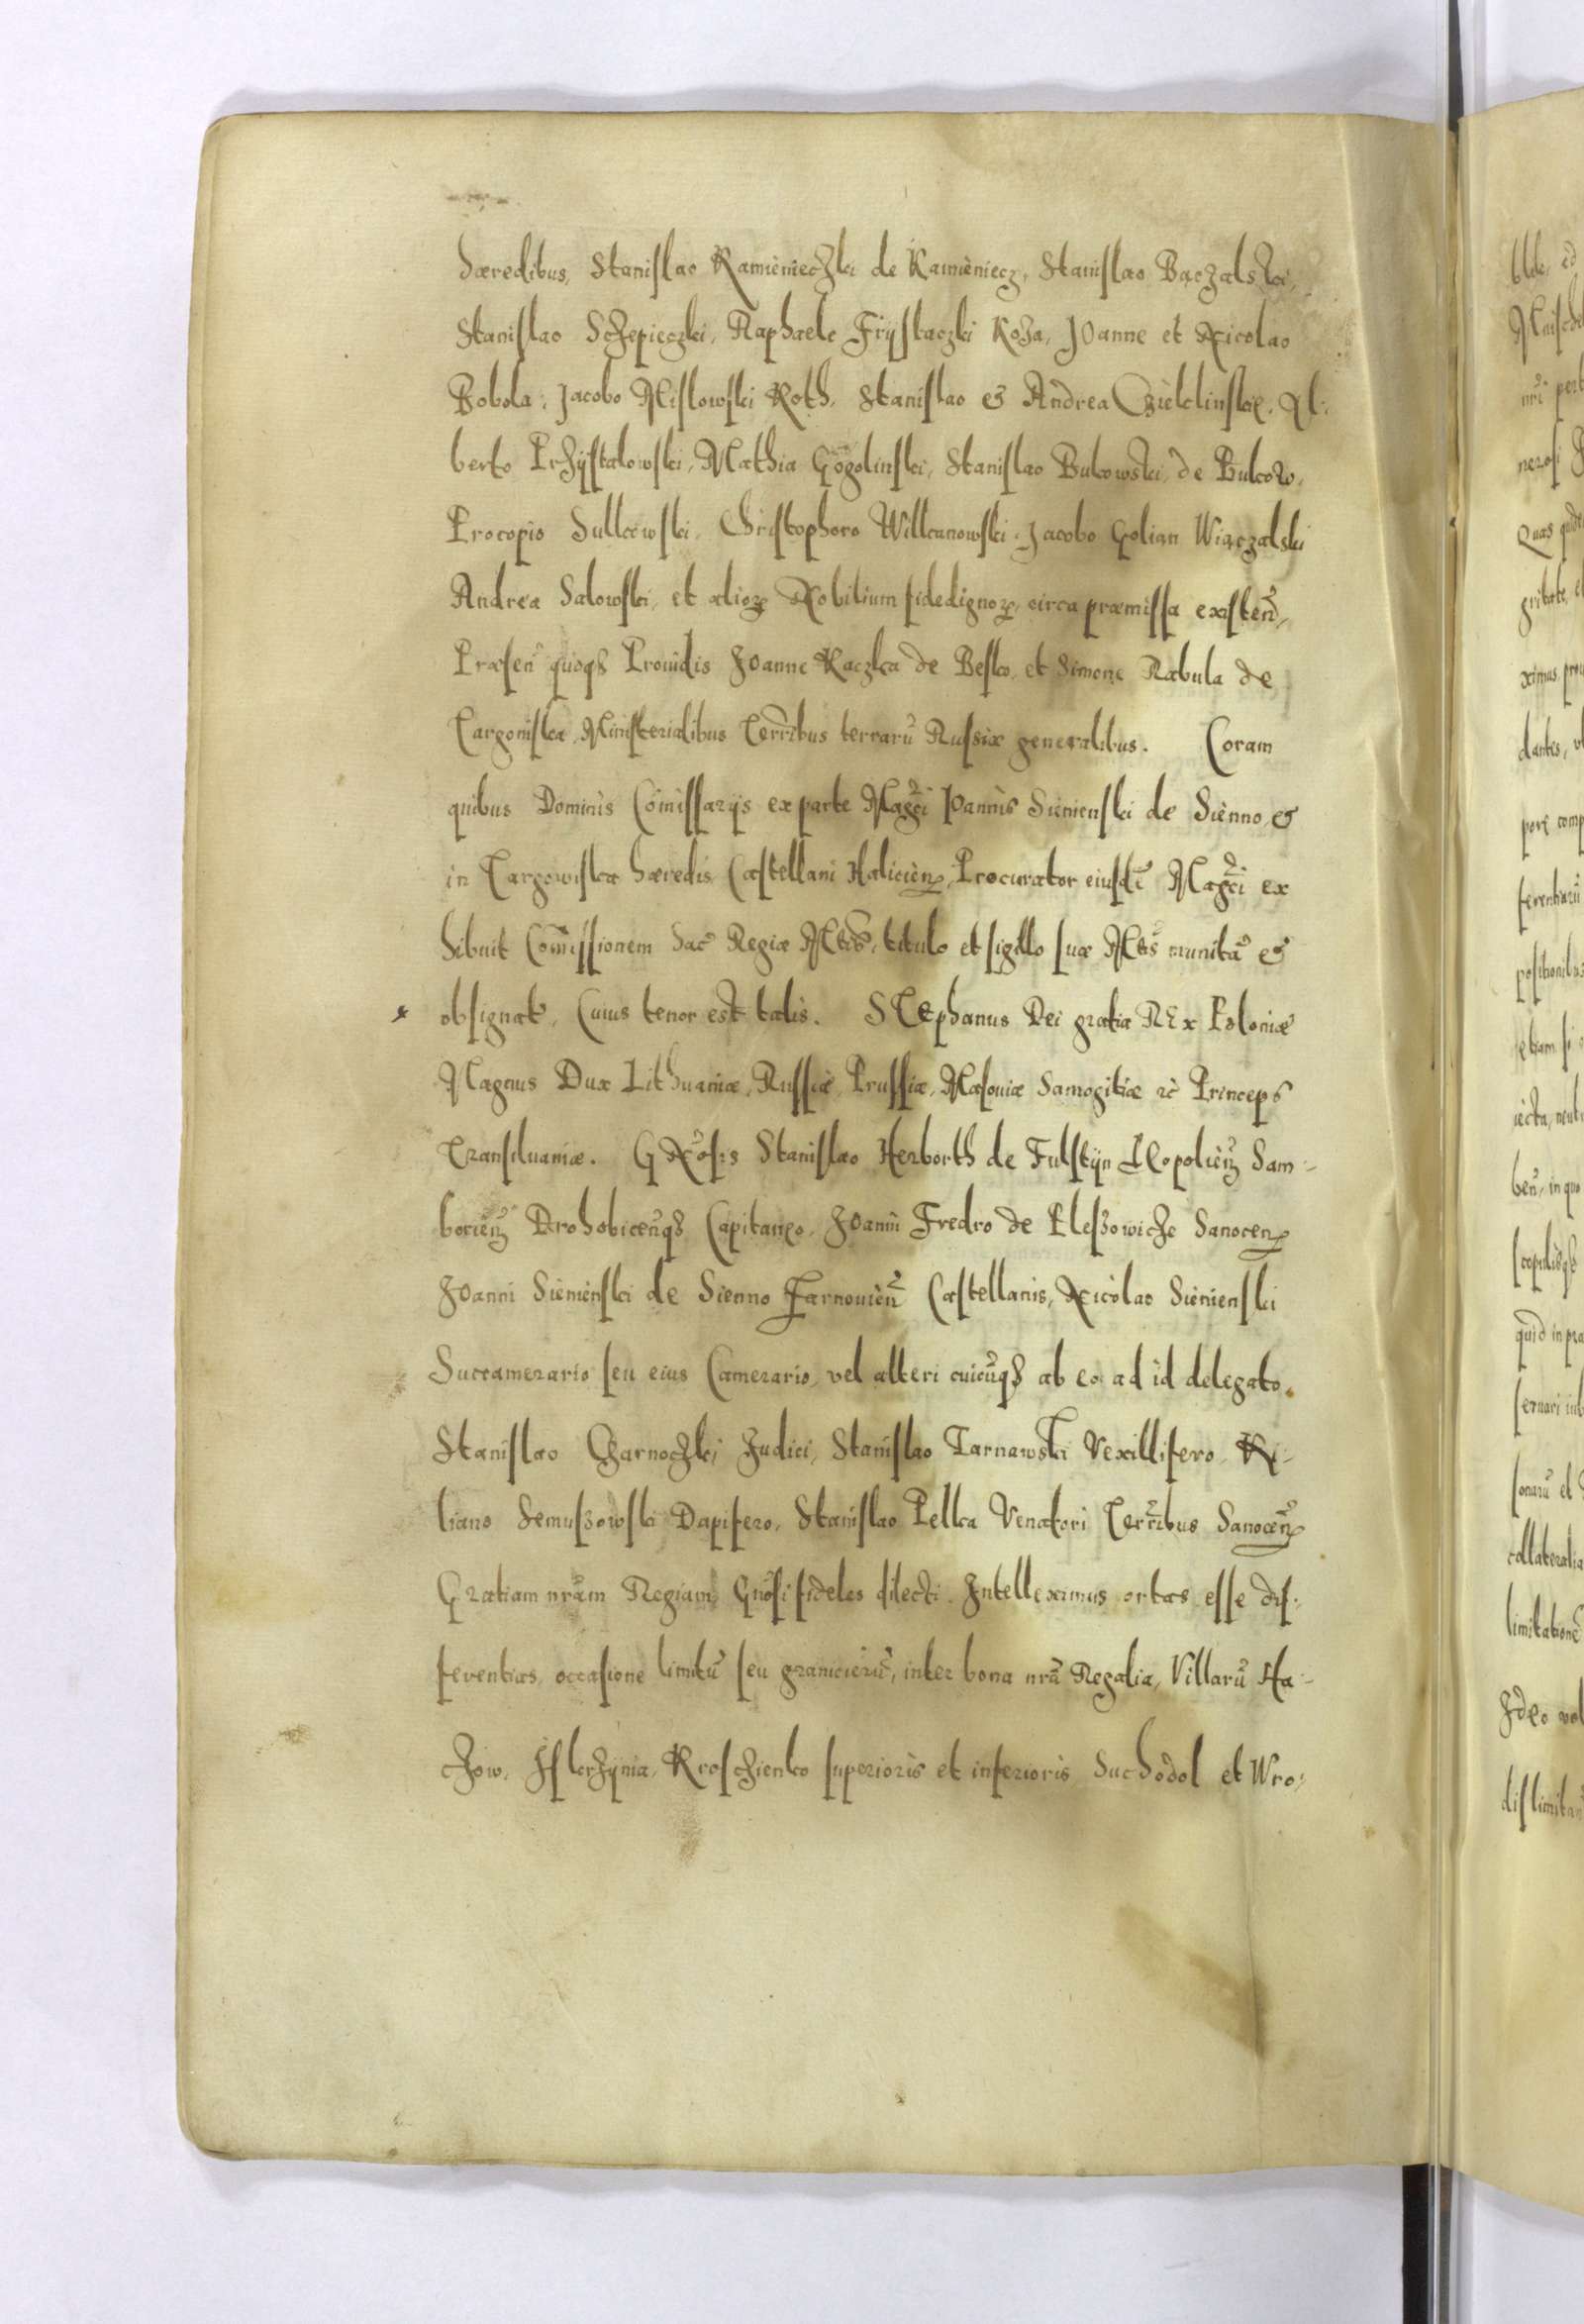 hæredibus, Stanislao Kamienieczki de Kamieniecz, Stanislao Bączalski,
Stanislao Sczepieczki, Raphaele Frijstaczki Koza, Joanne et Nicolao
Bobola, Jacobo Mislowski Roth, Stanislao & Andrea Czieklinskie, Al-
berto Przijstalowski, Mathia Gogolinski, Stanislao Bukowski, de Bukow,
Procopio Sulkowski, Christophoro Wilkanowski, Jacobo Golian Wiączalski
Andrea Salowski, et alioꝝ Nobilium fidedignoꝝ, circa præmissa existen̄,
Præsen̄ quoqȝ Prouidis Joanne Kaczka de Besko, et Simone Rabula de
Targowiska, Ministerialibus Terr̄ibus terrarū Russiæ generalibus. Coram
quibus Dominis Com̄issarijs ex parte Mag̃ci Joannis Sienienski de Sienno &
in Targowiska hæredis Castellani Halicien̄, Procurator eiusdē Mag̃ci ex
hibuit Com̄issionem Sac̄ Regiæ Mt̄is, titulo et sigillo suæ Mt̄is munitā &
obsignat, Cuius tenor est talis. STephanus Dei gratia REx Poloniæ
Magnus Dux Lithuaniæ, Russiæ, Prussiæ, Masouiæ Samogitiæ ꝛc̄ Princeps
Transiluaniæ. GN̄osis Stanislao Herborth de Fulstijn LEopolien̄ Sam-
borien̄ Drohobicen̄qȝ Capitaneo, Joanni Fredro de Pleszowicze Sanocen̄
Joanni Sienienski de Sienno Zarnouien̄ Castellanis, Nicolao Sienienski
Succamerario seu eius Camerario, vel alteri cuicūqȝ ab eo ad id delegato,
Stanislao Czarnoczki Judici, Stanislao Tarnawski Vexillifero, Ki-
liano Semuszowski Dapifero, Stanislao Pelka Venatori Terr̄ibus Sanocen̄
Gratiam nr̄am Regiam, Gn̄osi fideles dilecti. Intelleximus ortas esse dif-
ferentias, occasione limitū seu granicierū, inter bona nrā Regalia, Villarū Ha-
czow, Iskrzynia, Krosczienko superioris et inferioris Suchodol et Wro-